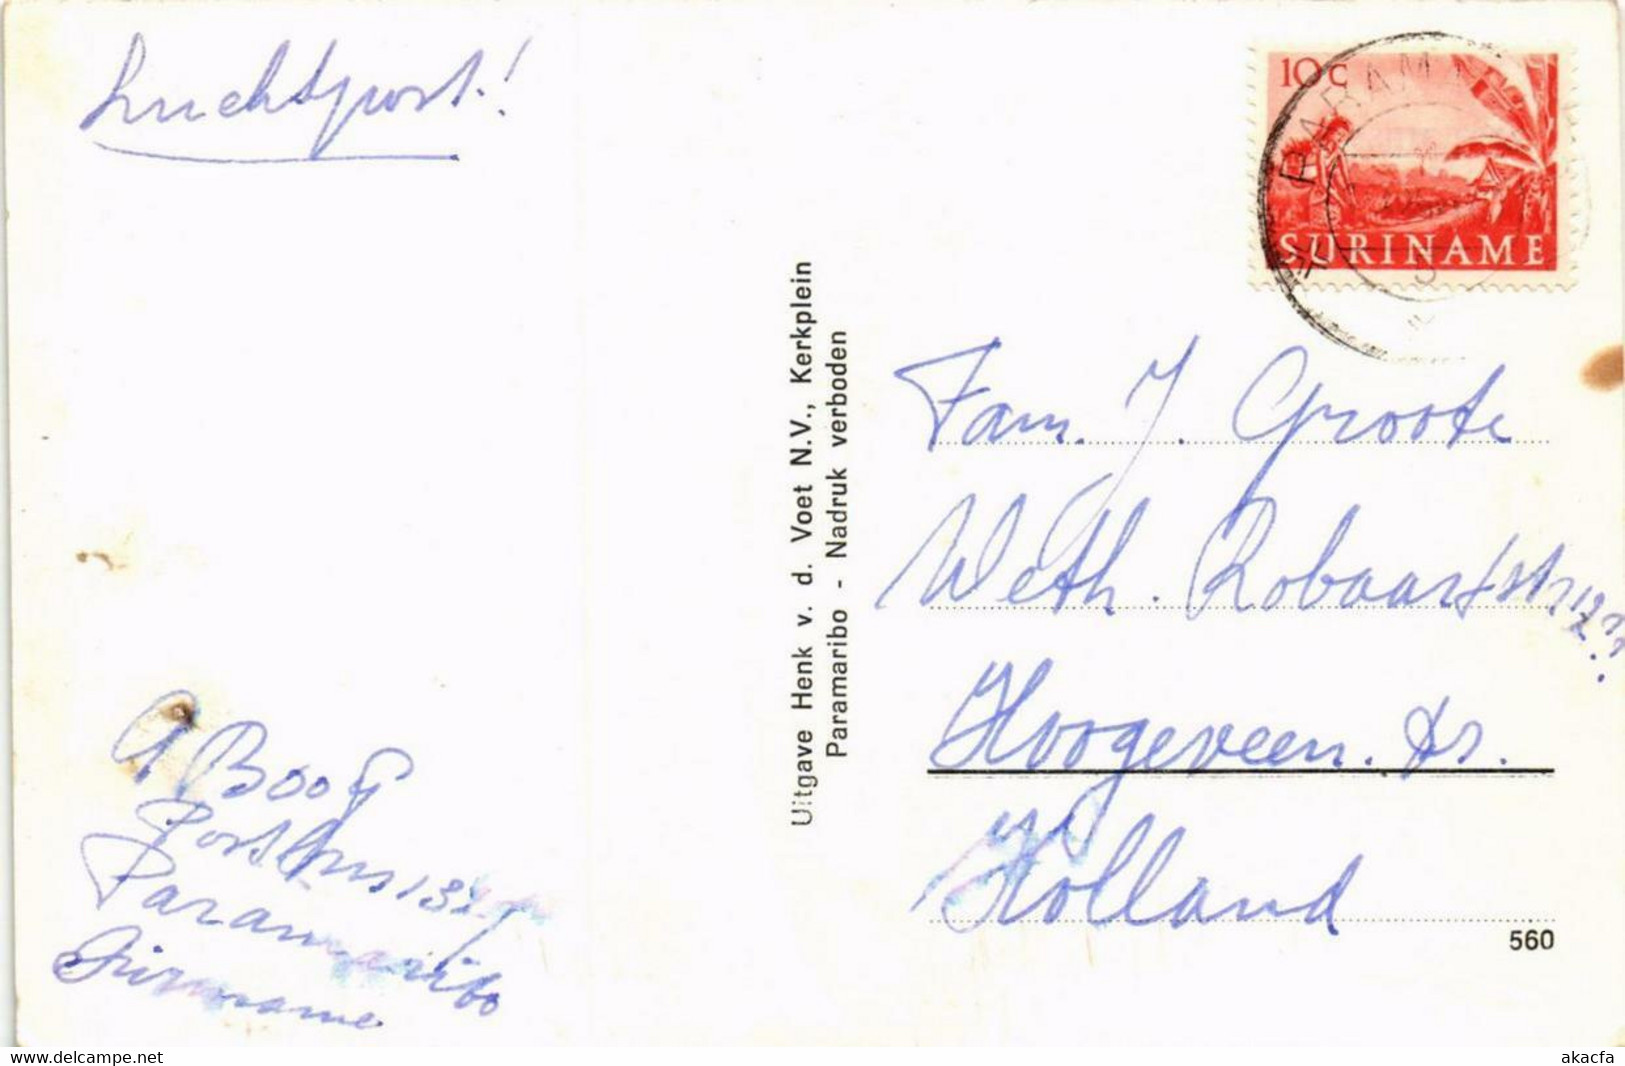 Luchtpost!
10 C
SURINAME
Uitgave Henk v. d. Voet N.V., Kerkplein
Paramaribo - Nadruk verboden
Fam. J. Groote
Weth. Robaartstr
Hoogeveen. Dr.
Holland
560
A Booy
Postbus
Paramaribo
Suriname
www.delcampe.net
akacfa